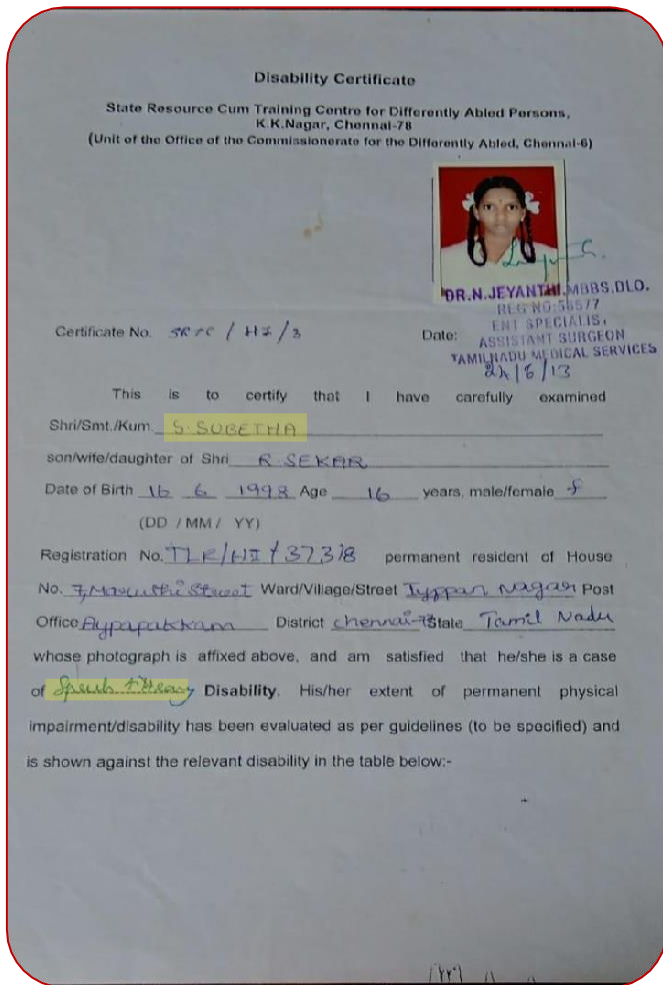 Disability Certificate
State Resource Cum Training Centre for Differently Abled Persons,
K.K.Nagar, Chennai-78
(Unit of the Office of the Commissionerate for the Differently Abled, Chennai-6)
DR.N.JEYANTHI,MBBS,DLO.
REG NO:58577
ENT SPECIALIS,
ASSISTANT SURGEON
TAMILNADU MEDICAL SERVICES
Certificate No. SRTC / HI / 3 Date: 24/6/13
This is to certify that I have carefully examined
Shri/Smt./Kum. S. SUBETHA
son/wife/daughter of Shri R SEKAR
Date of Birth 16 6 1998 Age 16 years, male/female f
(DD / MM / YY)
Registration No. TLR/HI/37318 permanent resident of House
No. 7, Street Ward/Village/Street Iyppan Nagar Post
Office Aypapakkam District Chennai State Tamil Nadu
whose photograph is affixed above, and am satisfied that he/she is a case
of Disability. His/her extent of permanent physical
impairment/disability has been evaluated as per guidelines (to be specified) and
is shown against the relevant disability in the table below:-